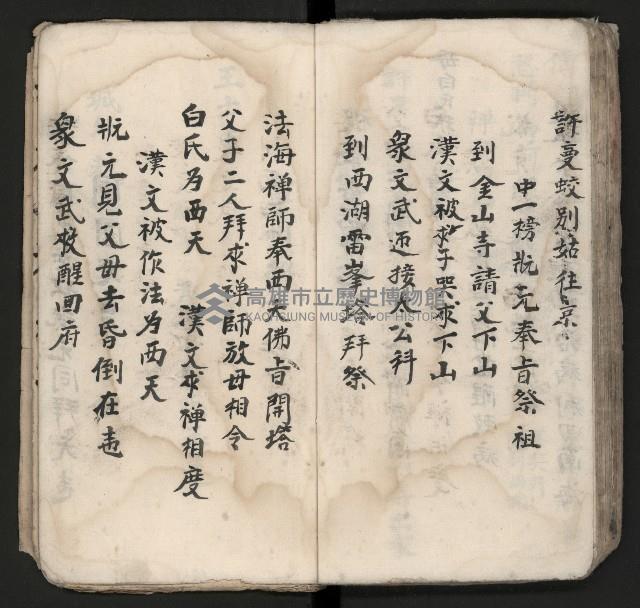 許夢蛟別姑往京
中一榜狀元奉旨祭祖
到金山寺請父下山
漢文被求子哭求下山
衆文武迎接太公科
到西湖雷峯塔拜祭
法海禅師奉西天佛旨開塔
父子二人拜求禅師放母相会
白氏為西天 漢文求禅相度
漢文被作法為西天
狀元見父母去昏倒在地
衆文武救醒回府
高雄市立歷史博物館
KAOHSIUNG MUSEUM OF HISTORY